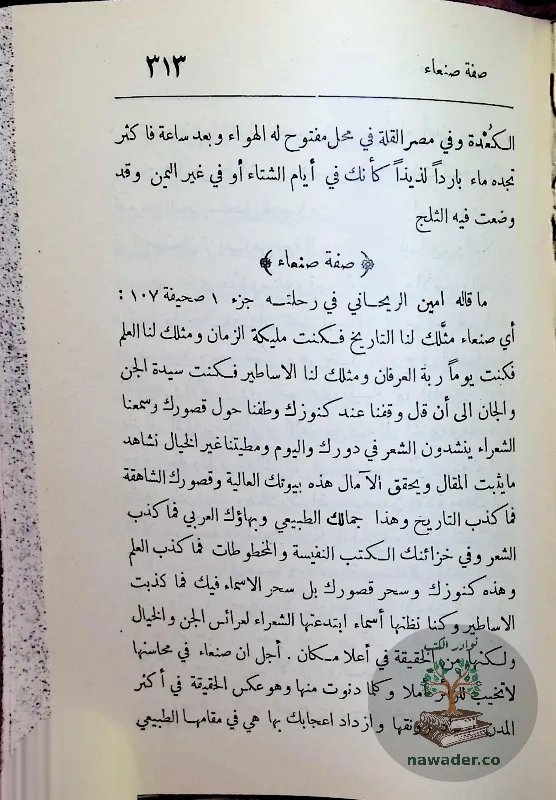 صفة صنعاء
٣١٣
الكُعْدة وفي مصر القلة في محل مفتوح له الهواء وبعد ساعة فاكثر
تجده ماء بارداً لذيذاً كأنك في أيام الشتاء أو في غير اليمن وقد
وضعت فيه الثلج
﴿ صفة صنعاء ﴾
ما قاله امين الريحاني في رحلته جزء ١ صحيفة ١٠٧ :
أي صنعاء مثَّلك لنا التاريخ فكنت مليكة الزمان ومثلك لنا العلم
فكنت يوماً ربة العرفان ومثلك لنا الاساطير فكنت سيدة الجن
والجان الى أن قل وقفنا عند كنوزك وطفنا حول قصورك وسمعنا
الشعراء ينشدون الشعر في دورك واليوم ومطيتنا غير الخيال نشاهد
ما يثبت المقال ويحقق الآمال هذه بيوتك العالية وقصورك الشاهقة
فما كذب التاريخ وهذا جمالك الطبيعي وبهاؤك العربي فما كذب
الشعر وفي خزائنك الكتب النفيسة والمخطوطات فما كذب العلم
وهذه كنوزك وسحر قصورك بل سحر الاسماء فيك فما كذبت
الاساطير وكنا نظنها أسماء ابتدعتها الشعراء لعرائس الجن والخيال
ولكنها من الحقيقة في أعلا مكان . أجل ان صنعاء في محاسنها
لا تخيب أملا وكلما دنوت منها وهو عكس الحقيقة في أكثر
المدن رونقها وازداد اعجابك بها هي في مقامها الطبيعي
نوادر الكتب
nawader.co